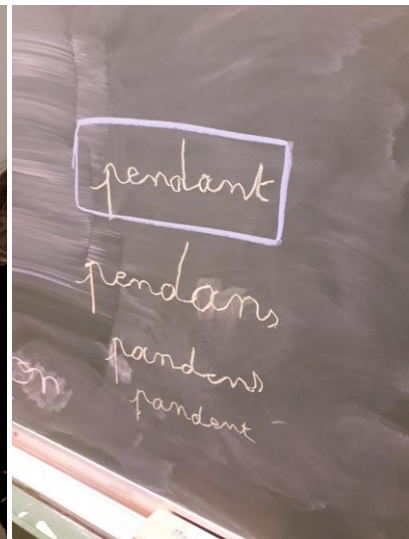 pendant
pendans
pandens
pandent
on